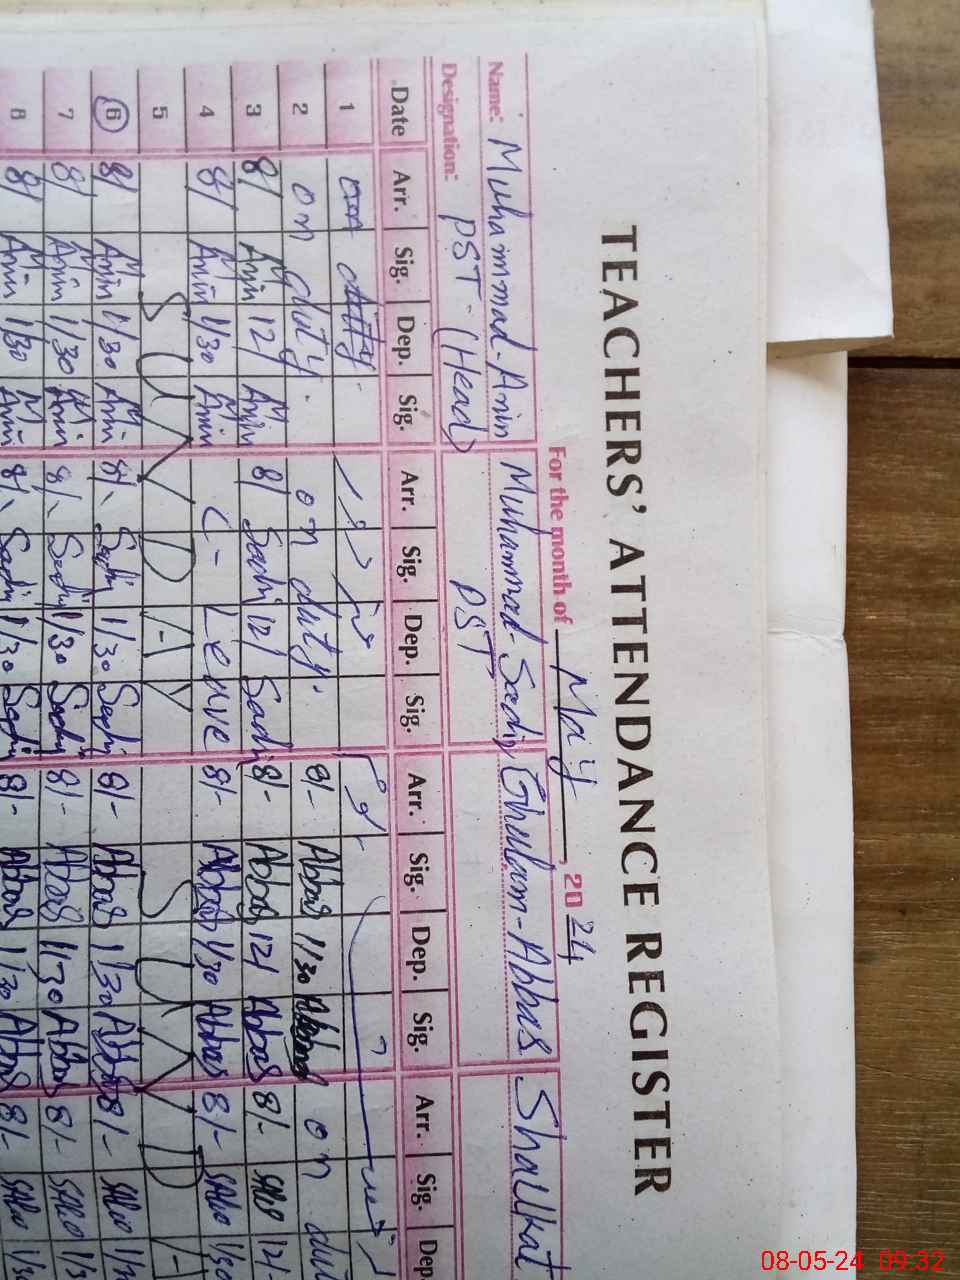 TEACHERS' ATTENDANCE REGISTER
For the month of May, 2024
Name: Muhammad-Amin Muhammad-Sadiq Ghulam-Abbas Shaukat
Designation: PST-(Head) PST
Date Arr. Sig. Dep. Sig. Arr. Sig. Dep. Sig. Arr. Sig. Dep. Sig. Arr. Sig. Dep.
1
2 on duty. on duty. 8/- Abbas 1/30 Abbas on dut
3 8/ M Amin 12/ M Amin 8/ Sadiq 12/ Sadiq 8/- Abbas 12/ Abbas 8/- 12/-
4 8/ M Amin 1/30 M Amin C-Leave 8/- Abbas 1/30 Abbas 8/- 1/30
5 SUNDAY SUND
6 8/ M Amin 1/30 M Amin 8/ Sadiq 1/30 Sadiq 8/- Abbas 1/30 Abbas 8/-
7 8/ M Amin 1/30 M Amin 8/ Sadiq 1/30 Sadiq 8/- Abbas 1/30 Abbas 8/-
8 8/ M Amin 1/30 M Amin 8/ Sadiq 1/30 Sadiq 8/- Abbas 1/30 Abbas 8/- 1/30
08-05-24 09:32